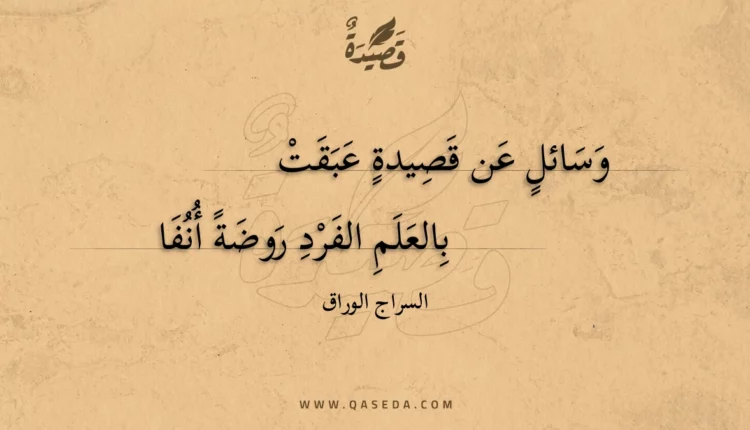 قَصِيدَةٌ
وَسَائلٍ عَن قَصِيدةٍ عَبَقَتْ
بِالعَلَمِ الفَرْدِ رَوضَةً أُنُفَا
السراج الوراق
WWW.QASEDA.COM